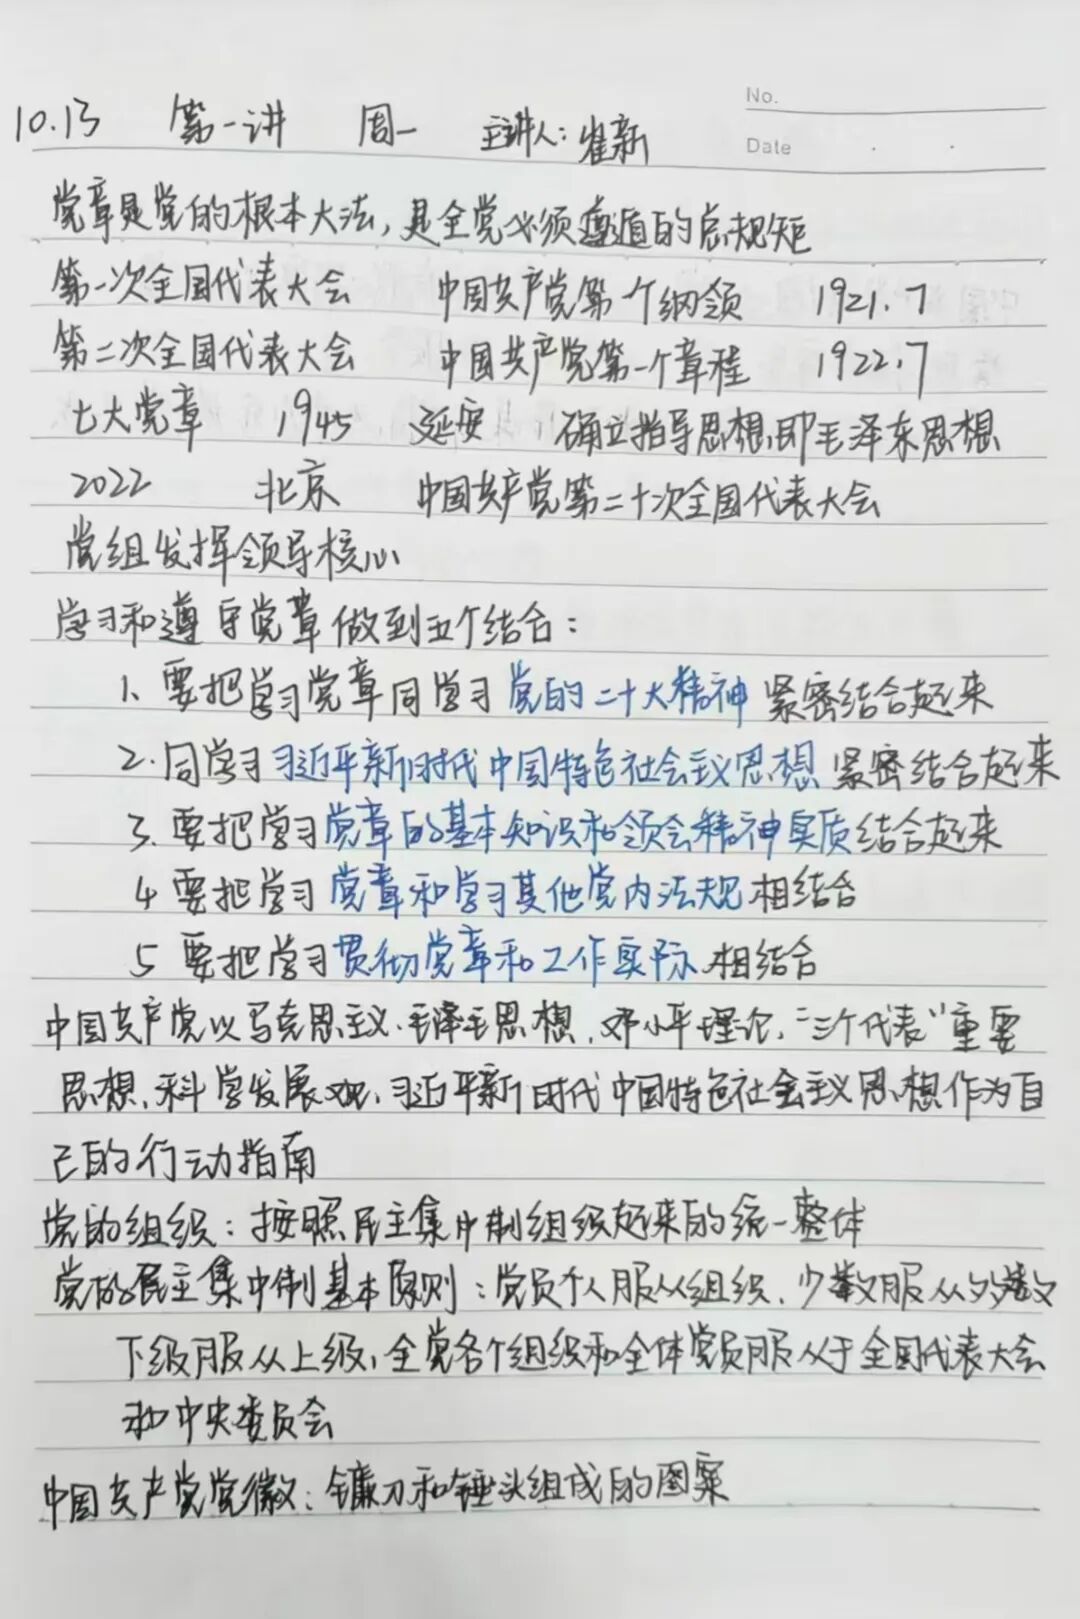 No.
10.13 第一讲 周一 主讲人：崔新
Date
党章是党的根本大法，是全党必须遵循的总规矩
第一次全国代表大会 中国共产党第一个纲领 1921.7
第二次全国代表大会 中国共产党第一个章程 1922.7
七大党章 1945 延安 确立指导思想，即毛泽东思想
2022 北京 中国共产党第二十次全国代表大会
党组发挥领导核心
学习和遵守党章做到五个结合：
1、要把学习党章同学习党的二十大精神紧密结合起来
2.同学习习近平新时代中国特色社会主义思想紧密结合起来
3、要把学习党章的基本知识和领会精神实质结合起来
4 要把学习党章和学习其他党内法规相结合
5 要把学习贯彻党章和工作实际相结合
中国共产党以马克思主义、毛泽毛思想、邓小平理论、“三个代表”重要
思想、科学发展观、习近平新时代中国特色社会主义思想作为自
己的行动指南
党的组织：按照民主集中制组织起来的统一整体
党的民主集中制基本原则：党员个人服从组织、少数服从多数
下级服从上级，全党各个组织和全体党员服从于全国代表大会
和中央委员会
中国共产党党徽：镰刀和锤头组成的图案